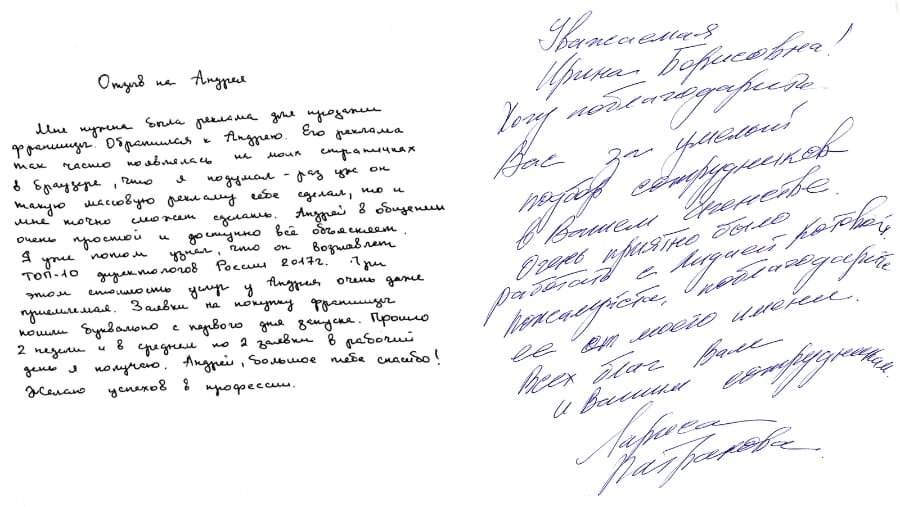 Отзыв на Андрея
Мне нужна была реклама для продажи
франшизы. Обратилась к Андрею. Его реклама
так часто появлялась на моих страничках
в браузере, что я подумал - раз уж он
такую массовую рекламу себе сделал, то и
мне точно сможет сделать. Андрей в общении
очень простой и доступно всё объясняет.
Я уже потом узнал, что он возглавляет
ТОП-10 директологов России 2017г. При
этом стоимость услуг у Андрея очень даже
приемлемая. Заявки на покупку франшизы
пошли буквально с первого дня запуска. Прошло
2 недели и в среднем по 2 заявки в рабочий
день я получаю. Андрей, большое тебе спасибо!
Желаю успехов в профессии.
Уважаемая
Ирина Борисовна!
Хочу поблагодарить
Вас за умелый
подбор сотрудников
в Вашем Агенстве.
Очень приятно было
работать с Лидией Котовой,
пожалуйста, поблагодарите
ее от моего имени.
Всех благ Вам
и Вашим сотрудникам.
Лариса
Патракова.